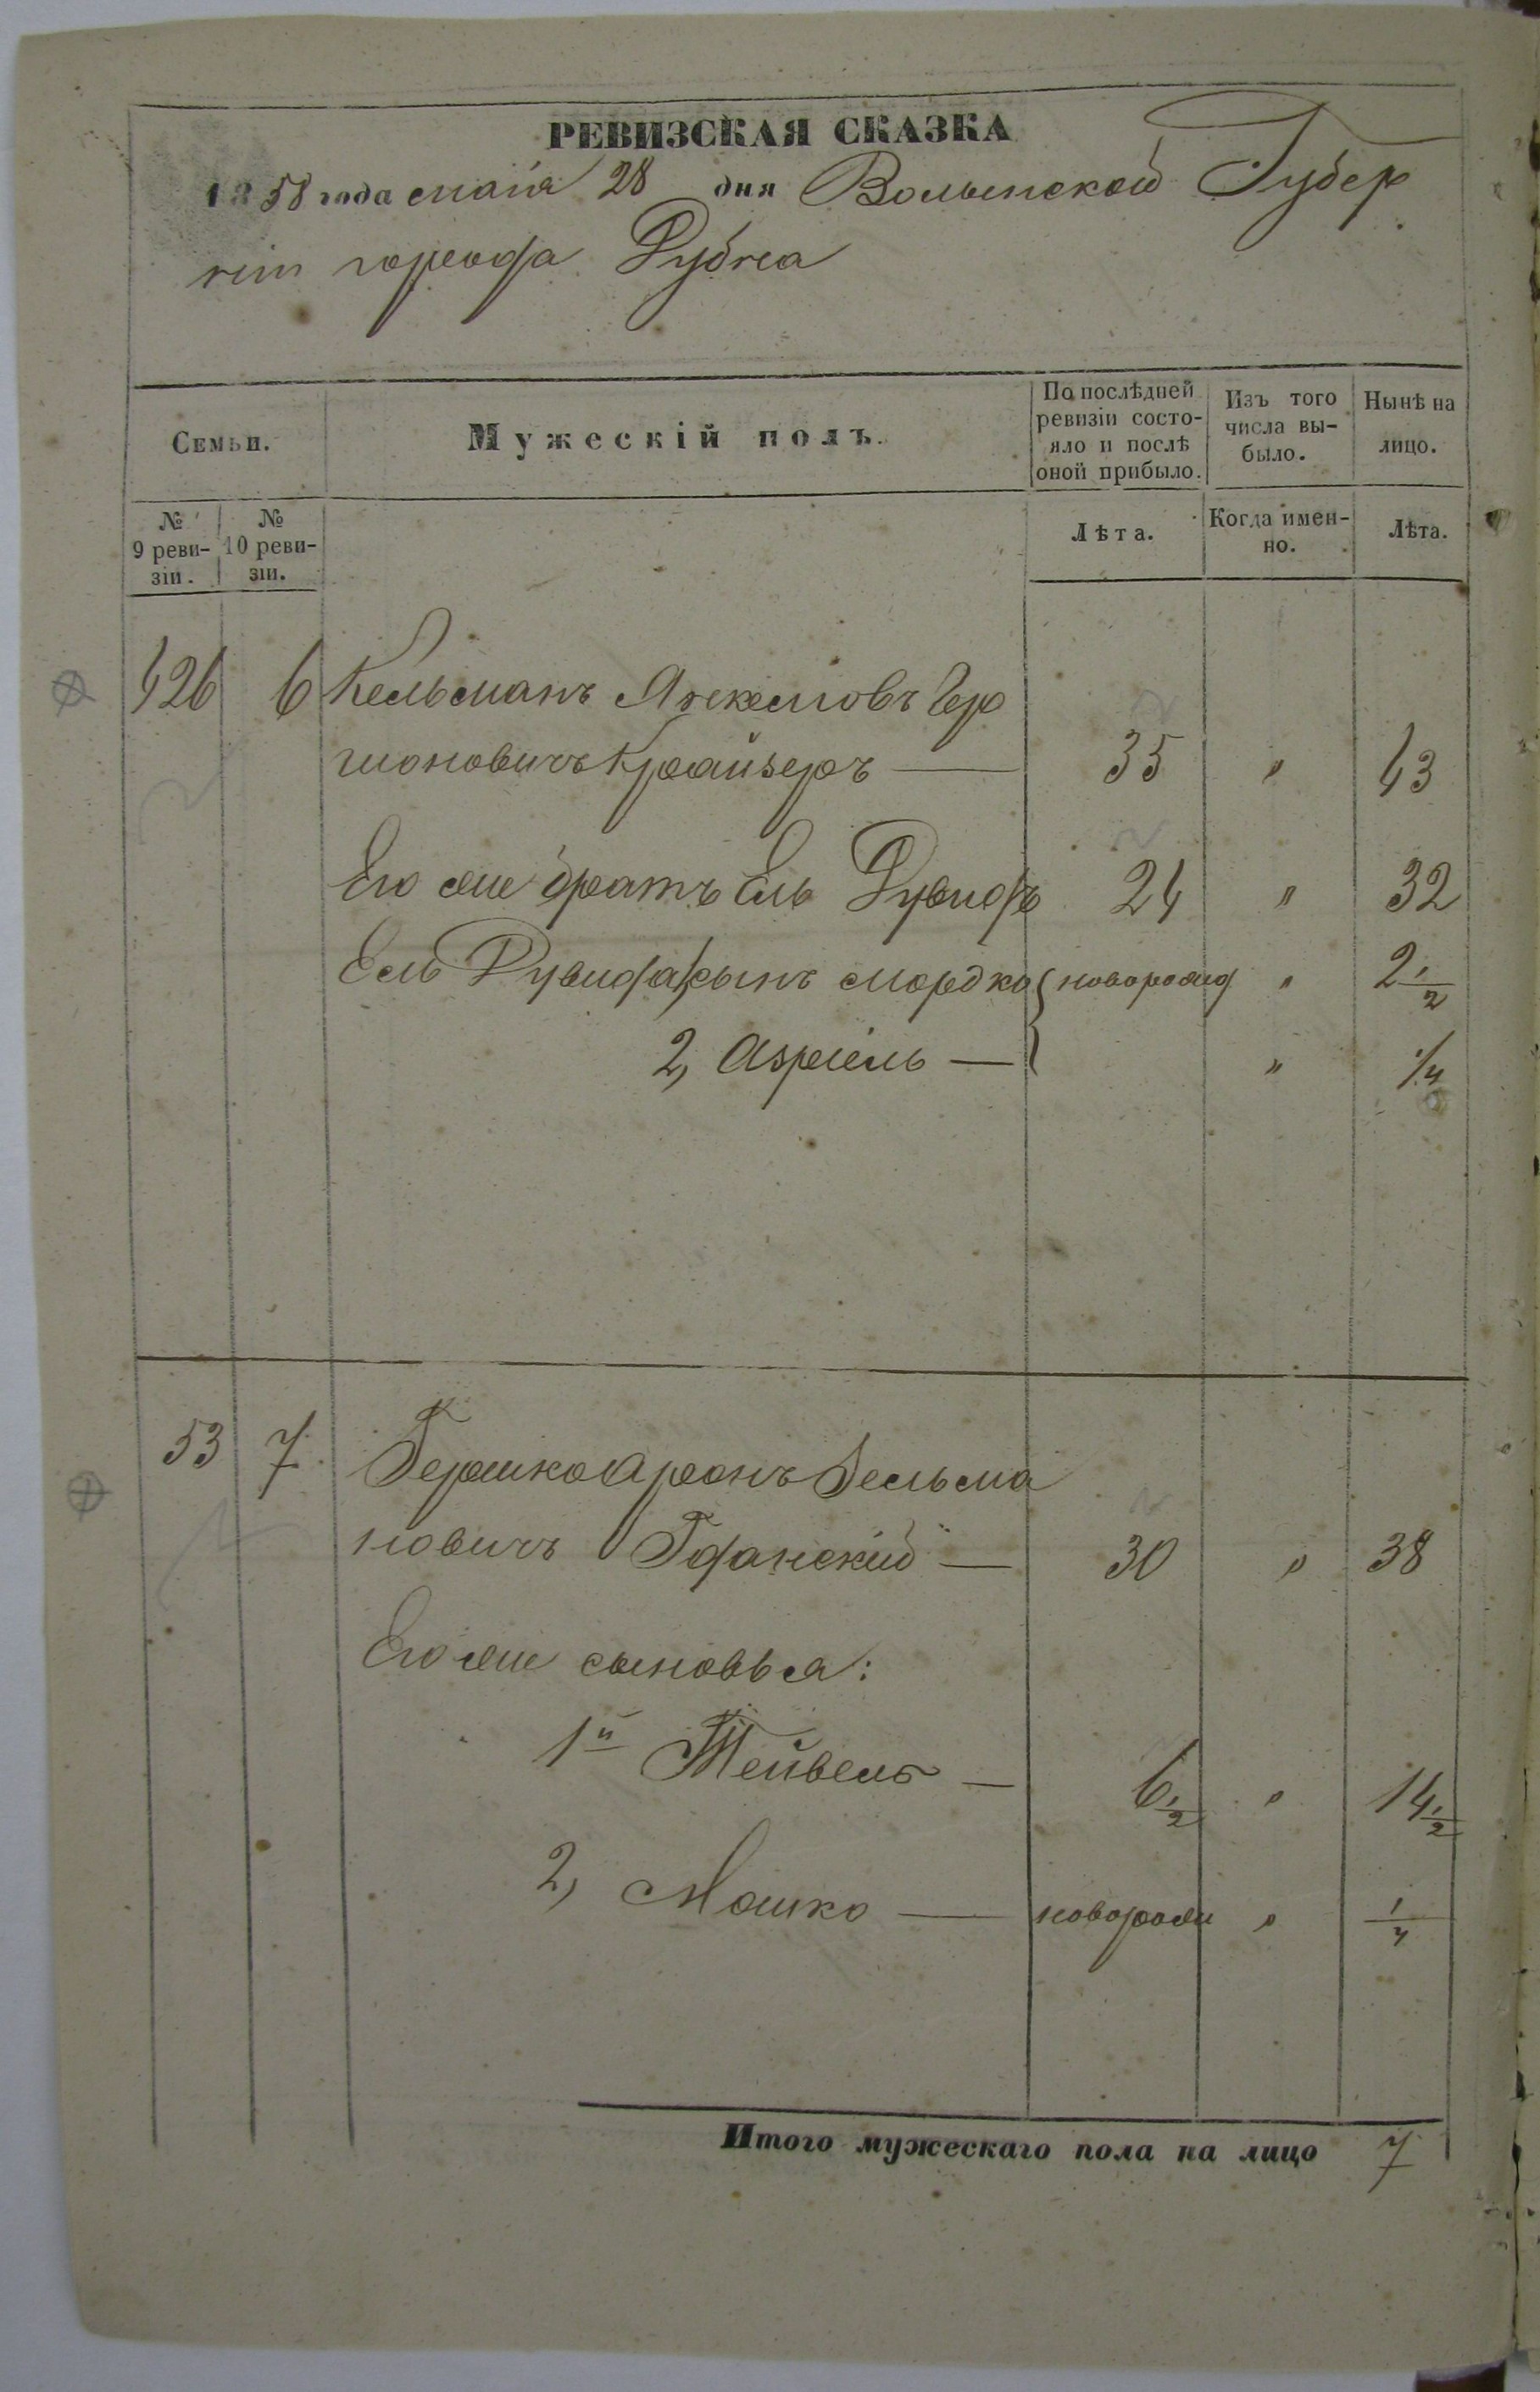 РЕВИЗСКАЯ СКАЗКА
1858 года маія 28 дня Волынской Губер
ніи города Дубна
Семьи.
Мужескій полъ.
По послѣдней ревизіи состо-
яло и послѣ оной прибыло.
Изъ того числа вы-
было.
Нынѣ на лицо.
№ 9 реви-
зіи.
№ 10 реви-
зіи.
Лѣта.
Когда имен-
но.
Лѣта.
426 6 Кельманъ Гер
шоновичъ Крайзеръ — 35 " 43
Его же братъ Ель Дувидъ 24 " 32
Ель Дувида сынъ Мордко новорожд " 2 1/2
2, Азріель — " 1/4
53 7 Гершко Аронъ Зельма
новичъ Гданскій — 30 " 38
Его же сыновья:
1й Тейвель — 6 1/2 " 14 1/2
2, Мошко — новорожд " 1/4
Итого мужескаго пола на лицо 7